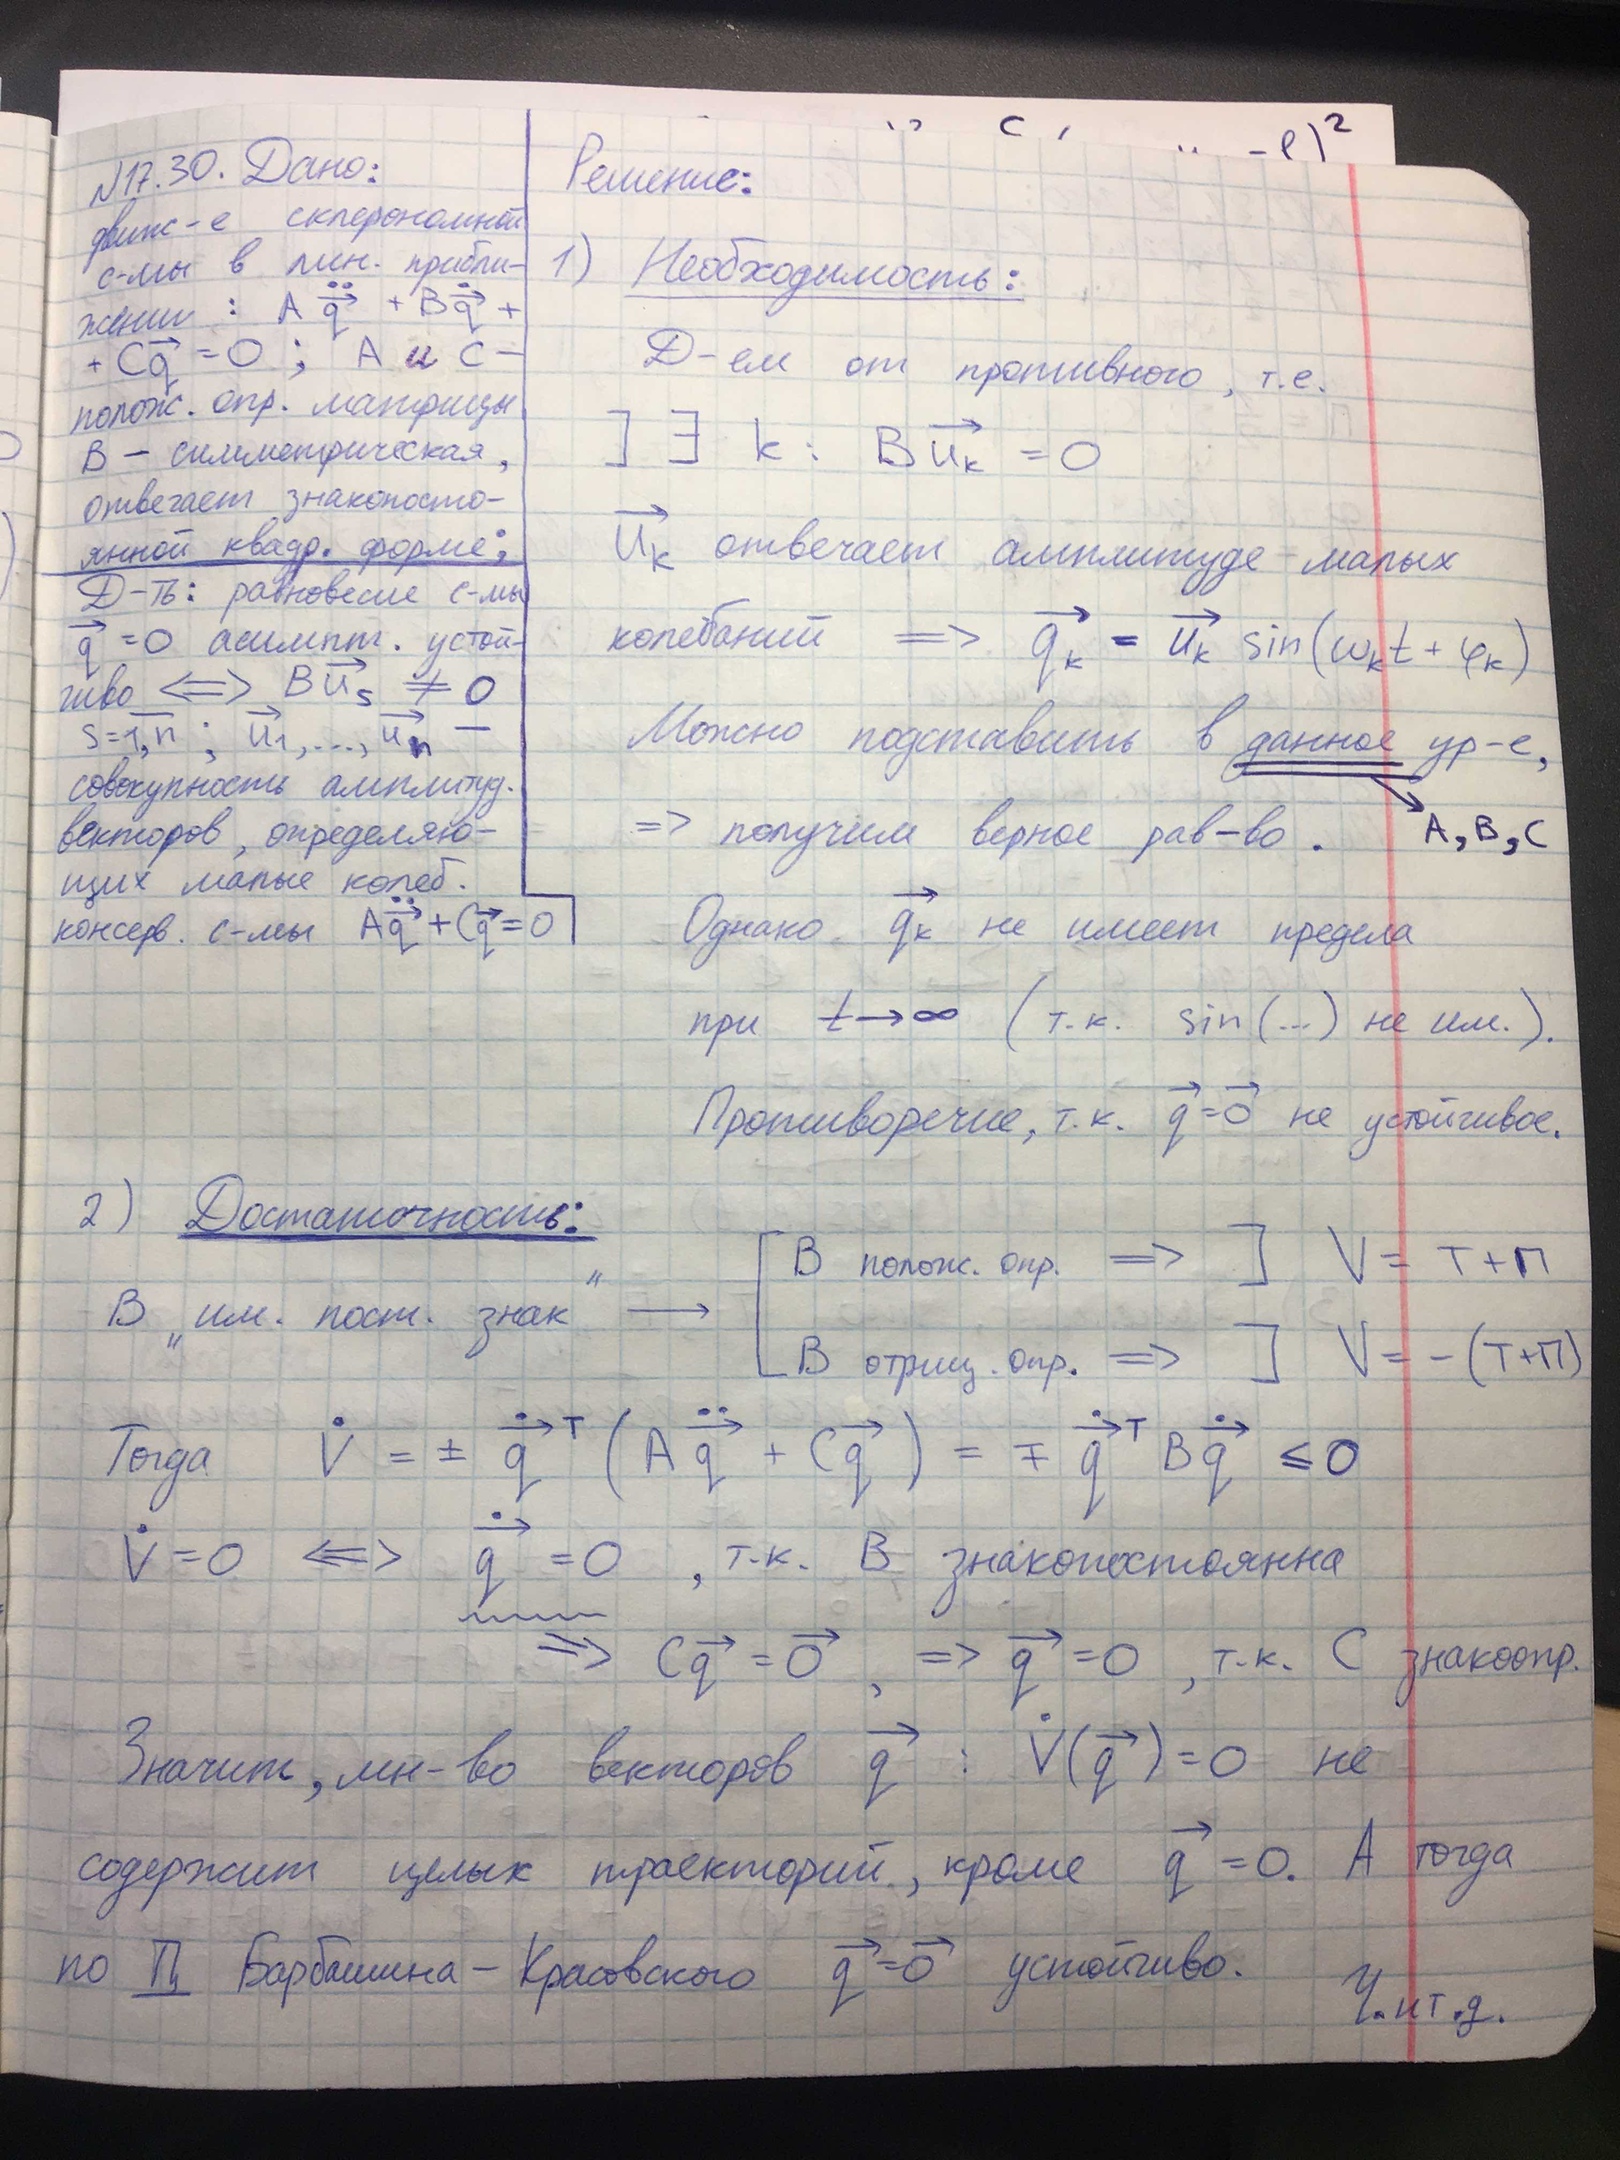 N17.30. Дано:
движ-е склерономной
с-мы в лин. прибли-
жении : A q̈⃗ + B q̇⃗ +
+ Cq⃗ = 0 ; A и C –
полож. опр. матрицы
B – симметрическая,
отвечает знакопосто-
янной квадр. форме;
Д-ть: равновесие с-мы
q⃗ = 0 асимпт. устой-
чиво <=> Bu⃗s ≠ 0
s=1,n ; u⃗1,..., u⃗n –
совокупность амплитуд.
векторов, определяю-
щих малые колеб.
консерв. с-мы Aq̈⃗ + Cq⃗ = 0
Решение:
1) Необходимость:
Д-ем от противного, т.е.
] ∃ k : Bu⃗k = 0
u⃗k отвечает амплитуде малых
колебаний => q⃗k = u⃗k sin(ωkt + φk)
Можно подставить в данное ур-е,
=> получим верное рав-во. A, B, C
Однако q⃗k не имеет предела
при t→∞ (т.к. sin(...) не им.).
Противоречие, т.к. q⃗=0⃗ не устойчивое.
2) Достаточность:
B „им. пост. знак“ → [ B полож. опр. => ] V = T+П
B отриц. опр. => ] V = –(T+П)
Тогда V̇ = ± q̇⃗ᵀ (Aq̈⃗ + Cq⃗) = ∓ q̇⃗ᵀ Bq̇⃗ ≤ 0
V̇ = 0 <=> q̇⃗ = 0 , т.к. B знакопостоянна
=> Cq⃗ = 0⃗ , => q⃗ = 0 , т.к. C знакоопр.
Значит, мн-во векторов q⃗ : V̇(q⃗) = 0 не
содержит целых траекторий, кроме q⃗ = 0. А тогда
по Барбашина – Красовского q⃗=0⃗ устойчиво.
Ч.и т.д.